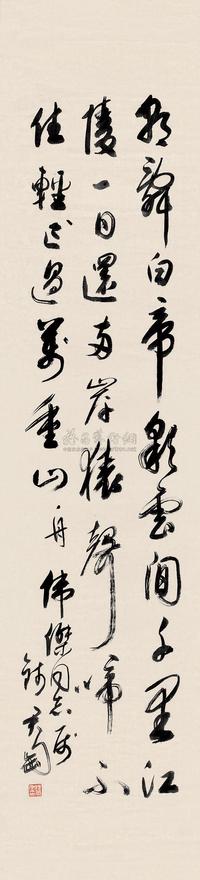 朝辭白帝彩雲間千里江
陵一日還兩岸猿聲啼不
住輕已過萬重山 舟 偉傑同志屬
錢君匋